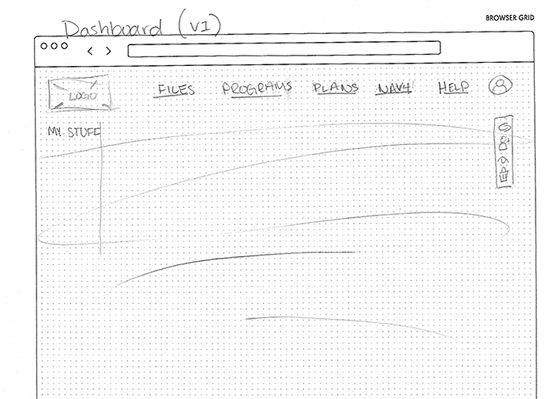 Dashboard (V1)
BROWSER GRID
LOGO
FILES PROGRAMS PLANS NAV4 HELP
MY STUFF